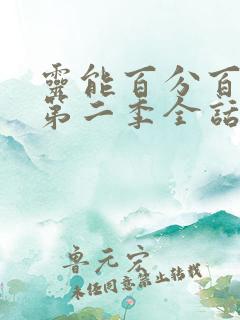 靈能百分百
第二季全話
鲁元宏
未经同意禁止转载